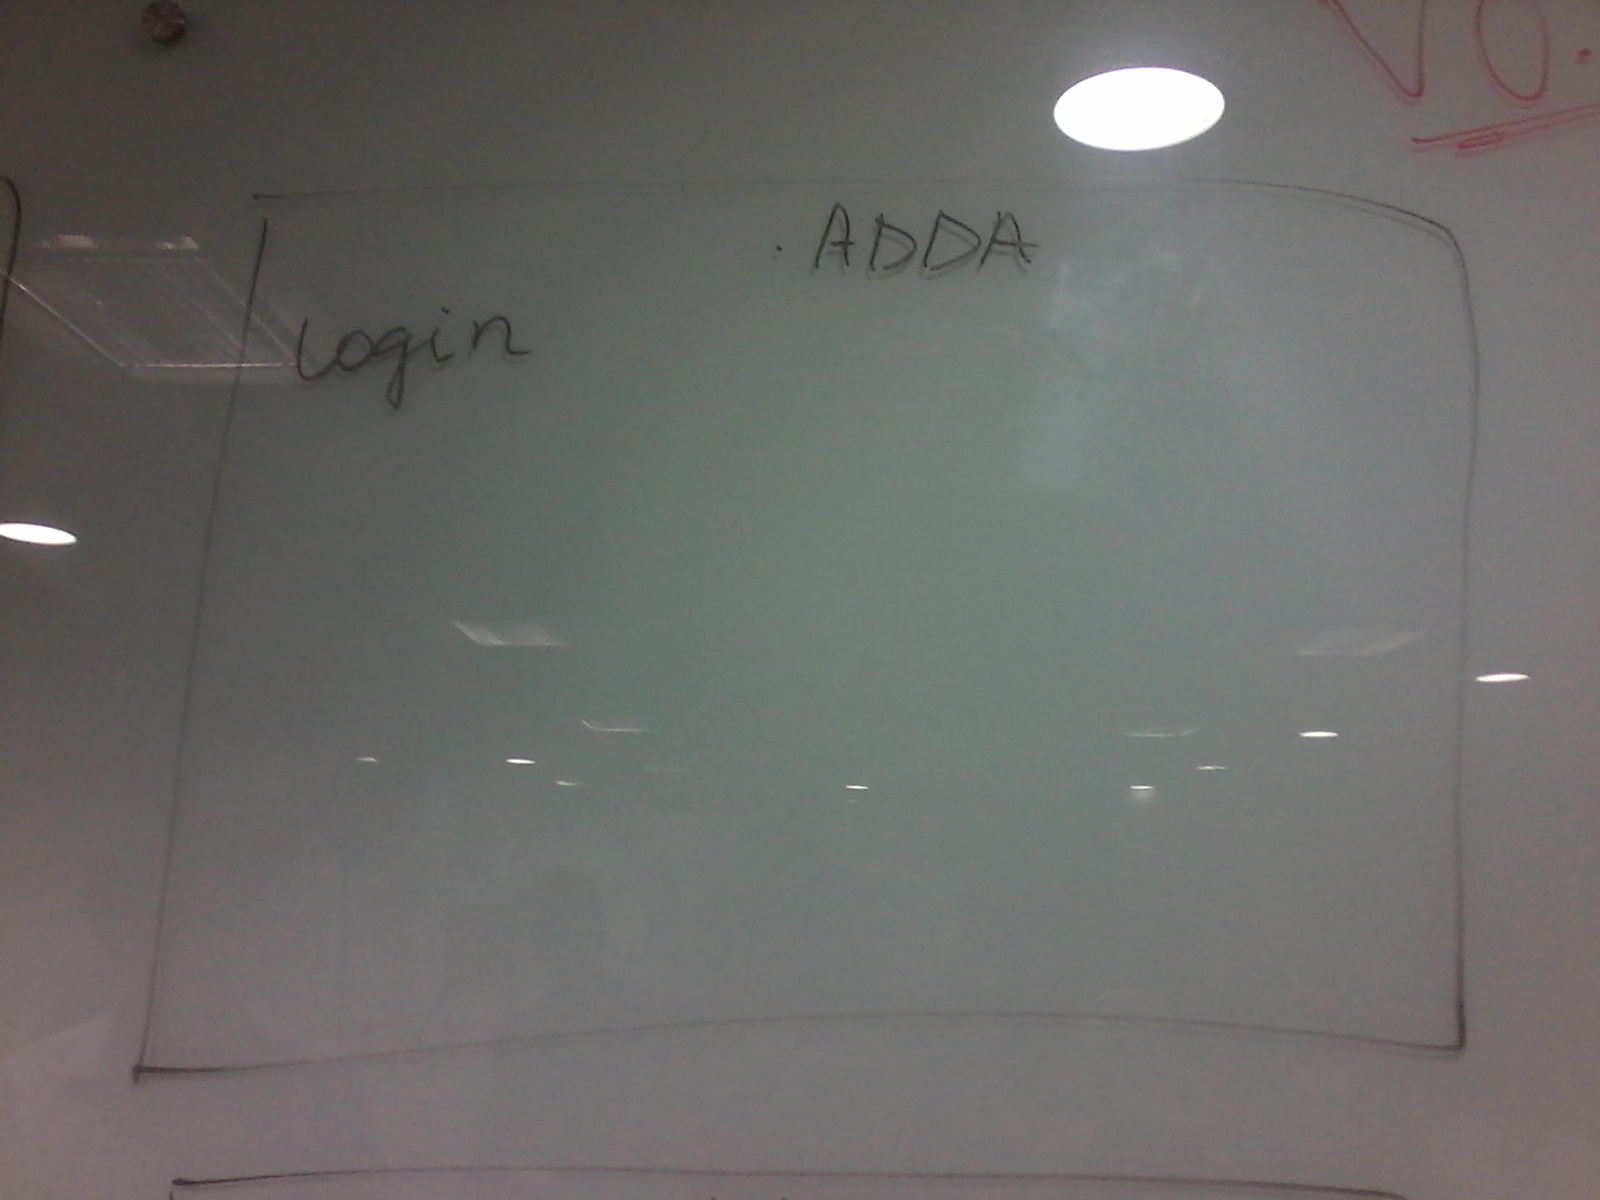 V0.
. ADDA
Login